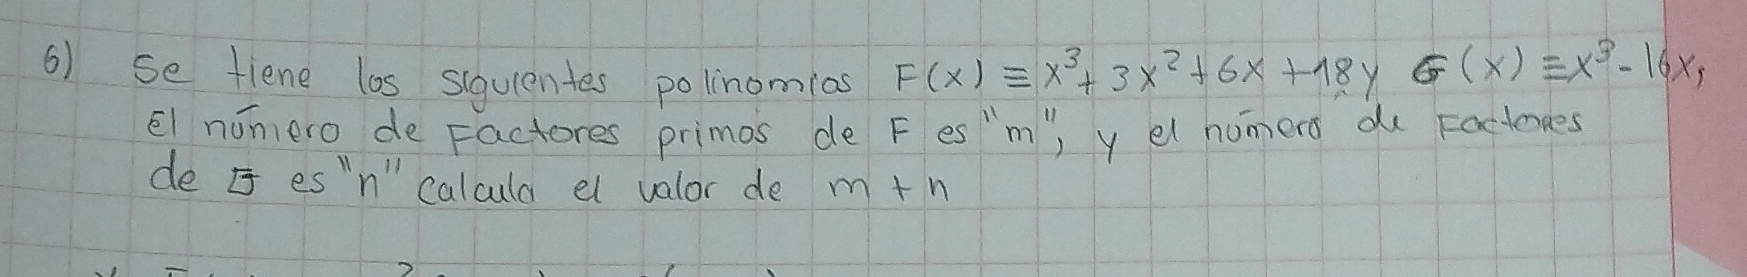 6) Se tiene los siguientes polinomios F(x) ≡ x³+ 3x²+6x+18 y G(x) ≡x³-16x,
El número de Factores primos de F es "m", y el número de Factores
de G es "n" calcula el valor de m + n